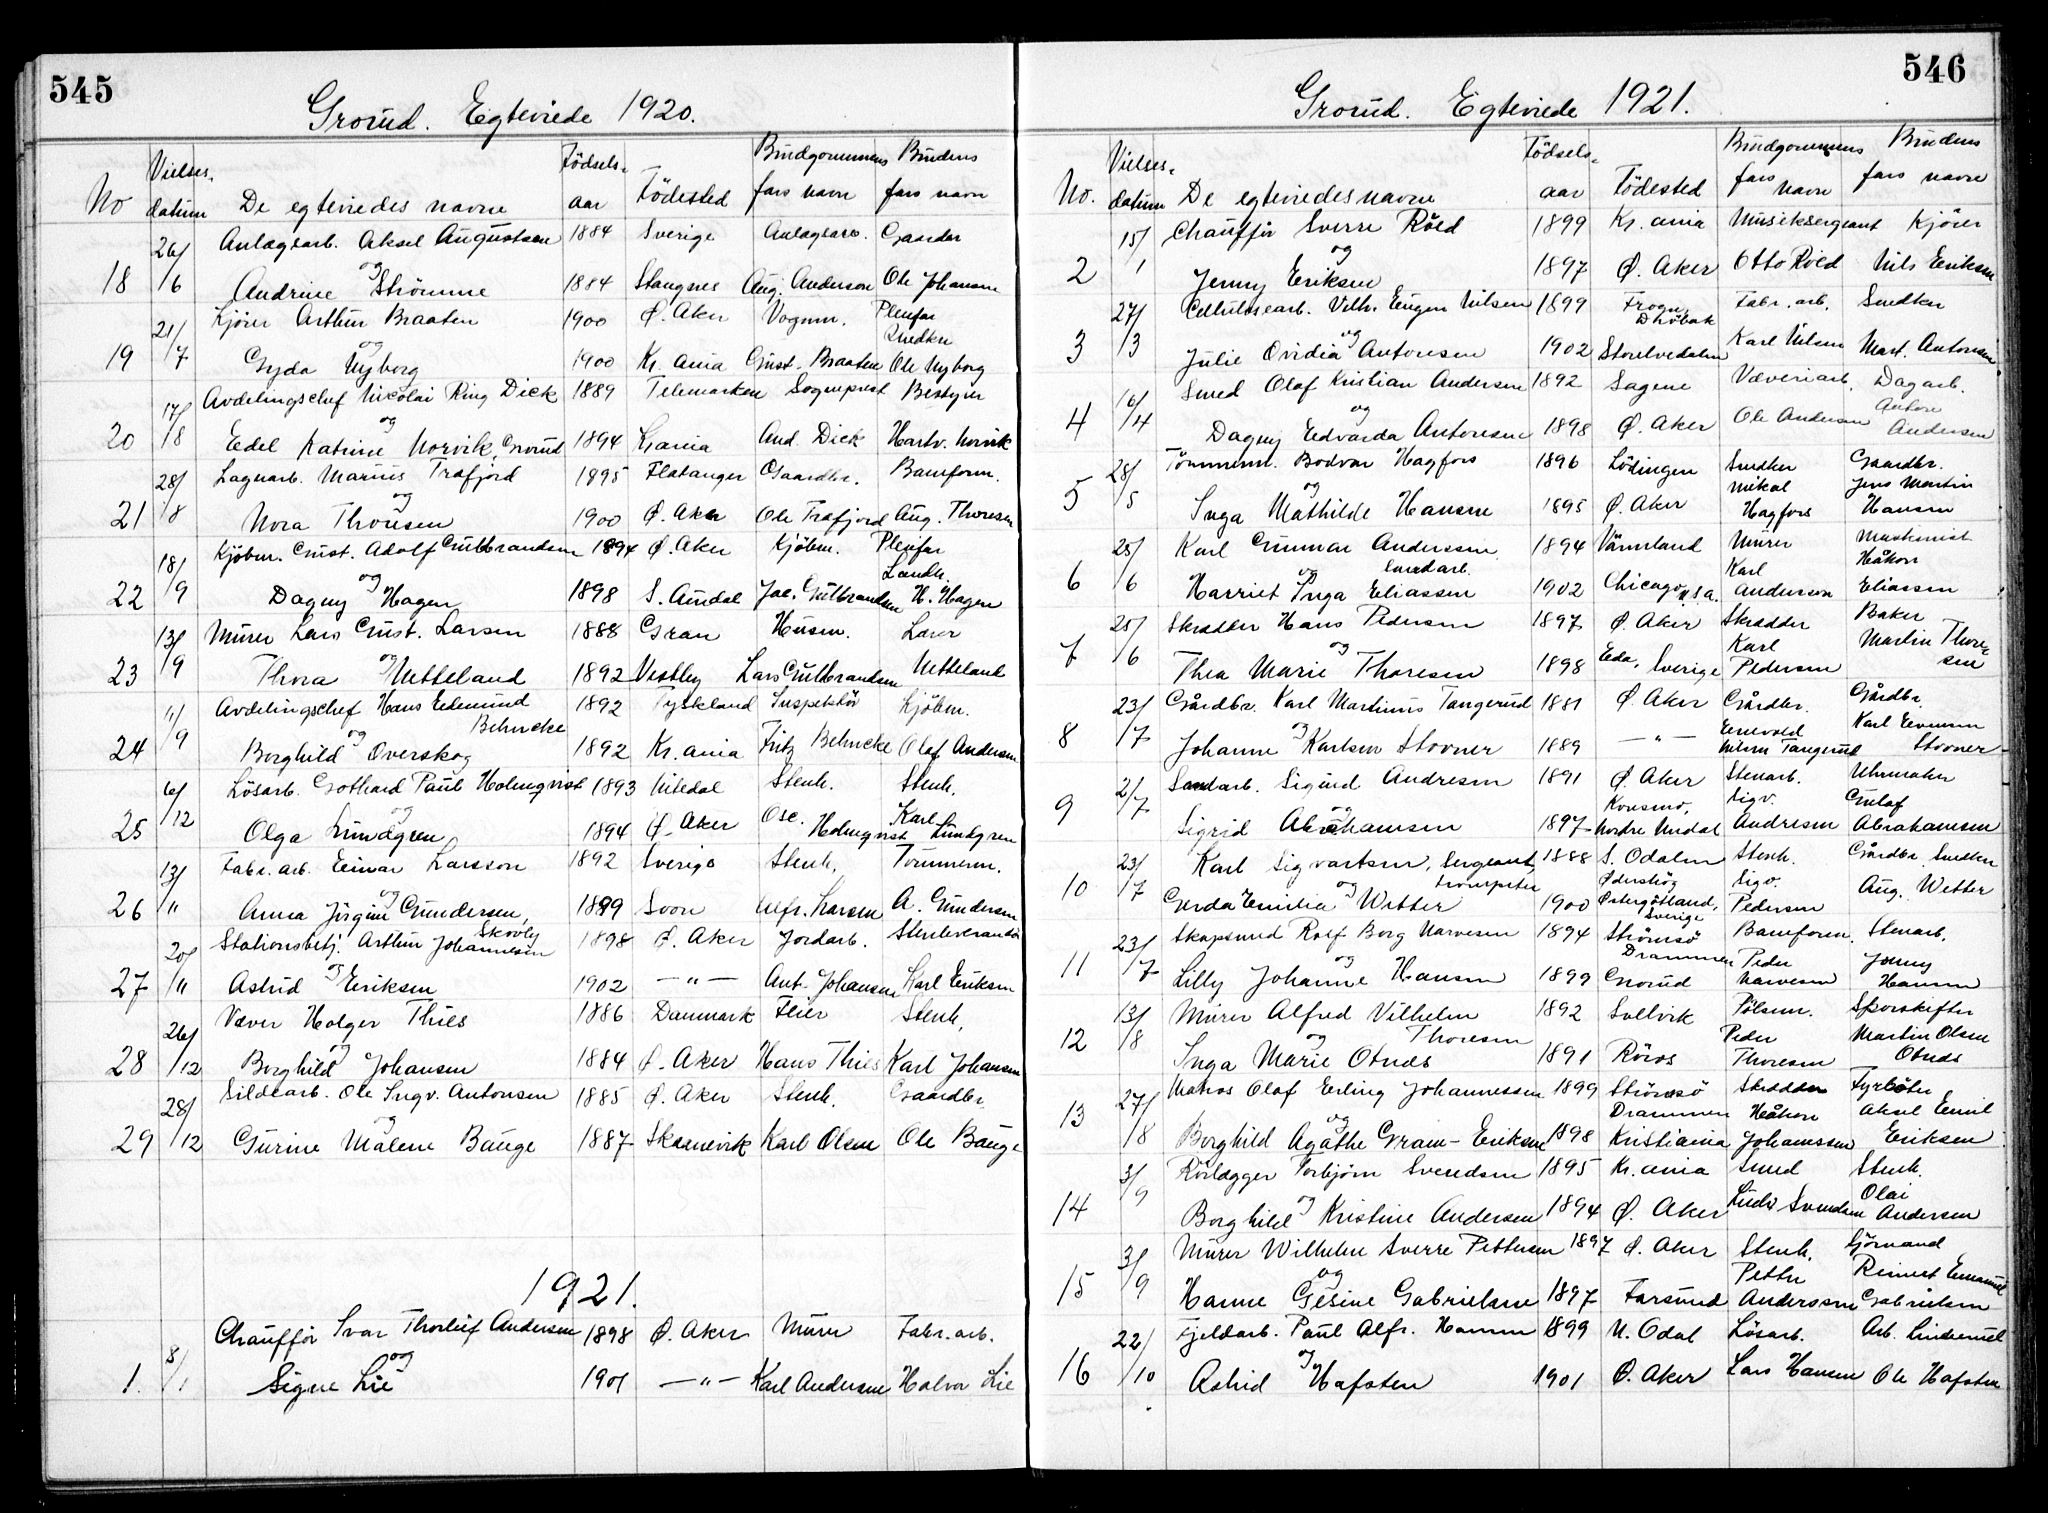 545
Grorud. Egteviede 1920.
No Vielses- datum De egteviedes navne Födsels- aar Födested Brudgommens fars navn Brudens fars navn
26/ Anlægsarb. Aksel Augustsen 1884 Sverige Anlægsarb. Gaardbr
18 /6 og
Andrine Strömme 1884 Stangnes Aug. Anderson Ole Johansen
21/ Kjörer Arthur Braaten 1900 Ö. Aker Vognm. Pleiefar Snedker
19 /7 og
Gyda Nyborg 1900 Kr.ania Gust. Braaten Ole Nyborg
17/ Avdelingschef Nicolai Ring Dick 1889 Telemarken Sogneprest Bestyrer
20 /8 og
Edel Katrine Norvik, Grorud 1894 Kr.ania And. Dick Hartv. Norvik
28/ Lagerarb. Marius Trafjord 1895 Flatanger Gaardbr. Baneform.
21 /8 og
Nora Thoresen 1900 Ö. Aker Ole Trafjord Aug. Thoresen
18/ Kjöbm. Gust. Adolf Gulbrandsen 1894 Ö. Aker Kjöbm. Pleiefar Landh.
22 /9 og
Dagny Hagen 1898 S. Aurdal Jac. Gulbrandsen H. Hagen
13/ Murer Lars Gust. Larsen 1888 Gran Husm. Lærer
23 /9 og
Thora Netteland 1892 Vestby Lars Gulbrandsen Netteland
11/ Avdelingschef Hans Edmund Behncke 1892 Tyskland Inspektör Kjöbm.
24 /9 og
Borghild Overskog 1892 Kr.ania Fritz Behncke Olaf Andersen
6/ Lösarb. Gothard Paul Holmqvist 1893 Nitedal Stenh. Stenh.
25 /12 og
Olga Lundgren 1894 Ö. Aker Osc. Holmqvist Karl Lundgren
13/ Fabr. arb. Einar Larsson 1892 Sverige Stenh. Tömmerm.
26 /11 og
Anna Jörgine Gundersen, 1899 Soon Alfr. Larsen A. Gundersen
20/ Stationsbetj. Arthur Johannesen Skovly 1898 Ö. Aker Jordarb. Stenleverandör
27 /11 og
Astrid Eriksen 1902 —"— Ant. Johansen Karl Eriksen
26/ Væver Holger Thies 1886 Danmark Feier Stenh.
28 /12 og
Borghild Johansen 1884 Ö. Aker Hans Thies Karl Johansen
28/ Sildearb. Ole Ingv. Antonsen 1885 Ö. Aker Stenh. Gaardbr.
29 /12 og
Gurine Malene Bauge 1887 Skaanevik Karl Olsen Ole Bauge
1921.
8/ Chaufför Ivar Thorleif Andersen 1898 Ö. Aker Murer Fabr. arb.
1. /1 og
Signe Lie 1901 —"— Karl Andersen Halvor Lie
546
Grorud. Egteviede 1921.
No. Vielses- datum De egteviedes navne Födsels- aar Födested Brudgommens fars navn Brudens fars navn
15/ Chaufför Sverre Röed 1899 Kr.ania Musiksergeant Kjörer
2 /1 og
Jenny Eriksen 1897 Ö. Aker Otto Röed Nils Eriksen
27/ Cellulosearb. Vilh. Eugen Nilsen 1899 Frogn, Dröbak Fabr. arb. Snedker
3 /3 og
Julie Ovidia Antonsen 1902 Storelvedalen Karl Nilsen Mart. Antonsen
16/ Smed Olaf Kristian Andersen 1892 Sagene Væveriarb. Dagarb.
4 /4 og
Dagny Edvarda Antonsen 1898 Ö. Aker Ole Andersen Antone Andersen
28/ Tömmerm. Bodvar Hagfors 1896 Lödingen Snedker Gaardbr.
5 /5 og Mikal Jens Martin
Inga Mathilde Hansen 1895 Ö. Aker Hagfors Hansen
25/ Karl Gunnar Anderssen Smedarb. 1894 Värmland Murer Maskinist
6 /6 og Karl Håkon
Harriet Inga Eliassen 1902 Chicago U.S.A. Anderson Eliassen
25/ Skrædder Hans Pedersen 1897 Ö. Aker Skrædder Baker
7 /6 og Karl Martin Thoresen
Thea Marie Thoresen 1898 Eda, Sverige Pedersen
23/ Gårdbr. Karl Martinus Tangerud 1881 Ö. Aker Gårdbr. Gårdbr.
8 /7 og Enevold Karl Evensen
Johanne Karlsen Stovner 1889 —"— Nilsen Tangerud Stovner
2/ Sandarb. Sigurd Andresen 1891 Ö. Aker Stenarb. Uhrmaker
9 /7 og Konsmo, Sigv. Gulof
Sigrid Abrahamsen 1897 Nordre Undal Andresen Abrahamsen
23/ Karl Sigvartsen, Sergeant, trompeter 1888 S. Odalen Stenh. Gårdbr. Snedker
10 /7 og Sigv. Aug. Wetter
Gerda Emilia Wetter 1900 Östergötland, Sverige Pedersen
23/ Skapsmed Rolf Borg Narvesen 1894 Strömsö Drammen Baneform. Stenarb.
11 /7 og Peder Jonny
Lilly Johanne Hansen 1899 Grorud Narvesen Hansen
13/ Murer Alfred Vilhelm Thoresen 1892 Sollvik Pölsem. Sporskifter
12 /8 og Peder Martin Olsen
Inga Marie Otnes 1891 Röros Thoresen Otnes
27/ Matros Olaf Erling Johannessen 1899 Strömsö Drammen Skrædder Fyrböter
13 /8 og Håkon Aksel Emil
Borghild Agathe Gram-Eriksen 1898 Kristiania Johannssen Eriksen
3/ Rörlægger Torbjörn Svendsen 1895 Kr.ania Smed Stenh.
14 /9 og Olai
Borghild Kristine Andersen 1894 Ö. Aker Ludv Svendsen Andersen
3/ Murer Wilhelm Sverre Pettersen 1897 Ö. Aker Stenh. Sjömand
15 /9 og Petter Reinert Emanuel
Hanne Gesine Gabrielsen 1897 Farsund Anderssen Gabrielsen
22/ Fjeldarb. Paul Alfr. Hansen 1899 N. Odal Lösarb. Arb.
16 /10 og
Astrid Hafsten 1901 Ö. Aker Lars Hansen Ole Hafsten